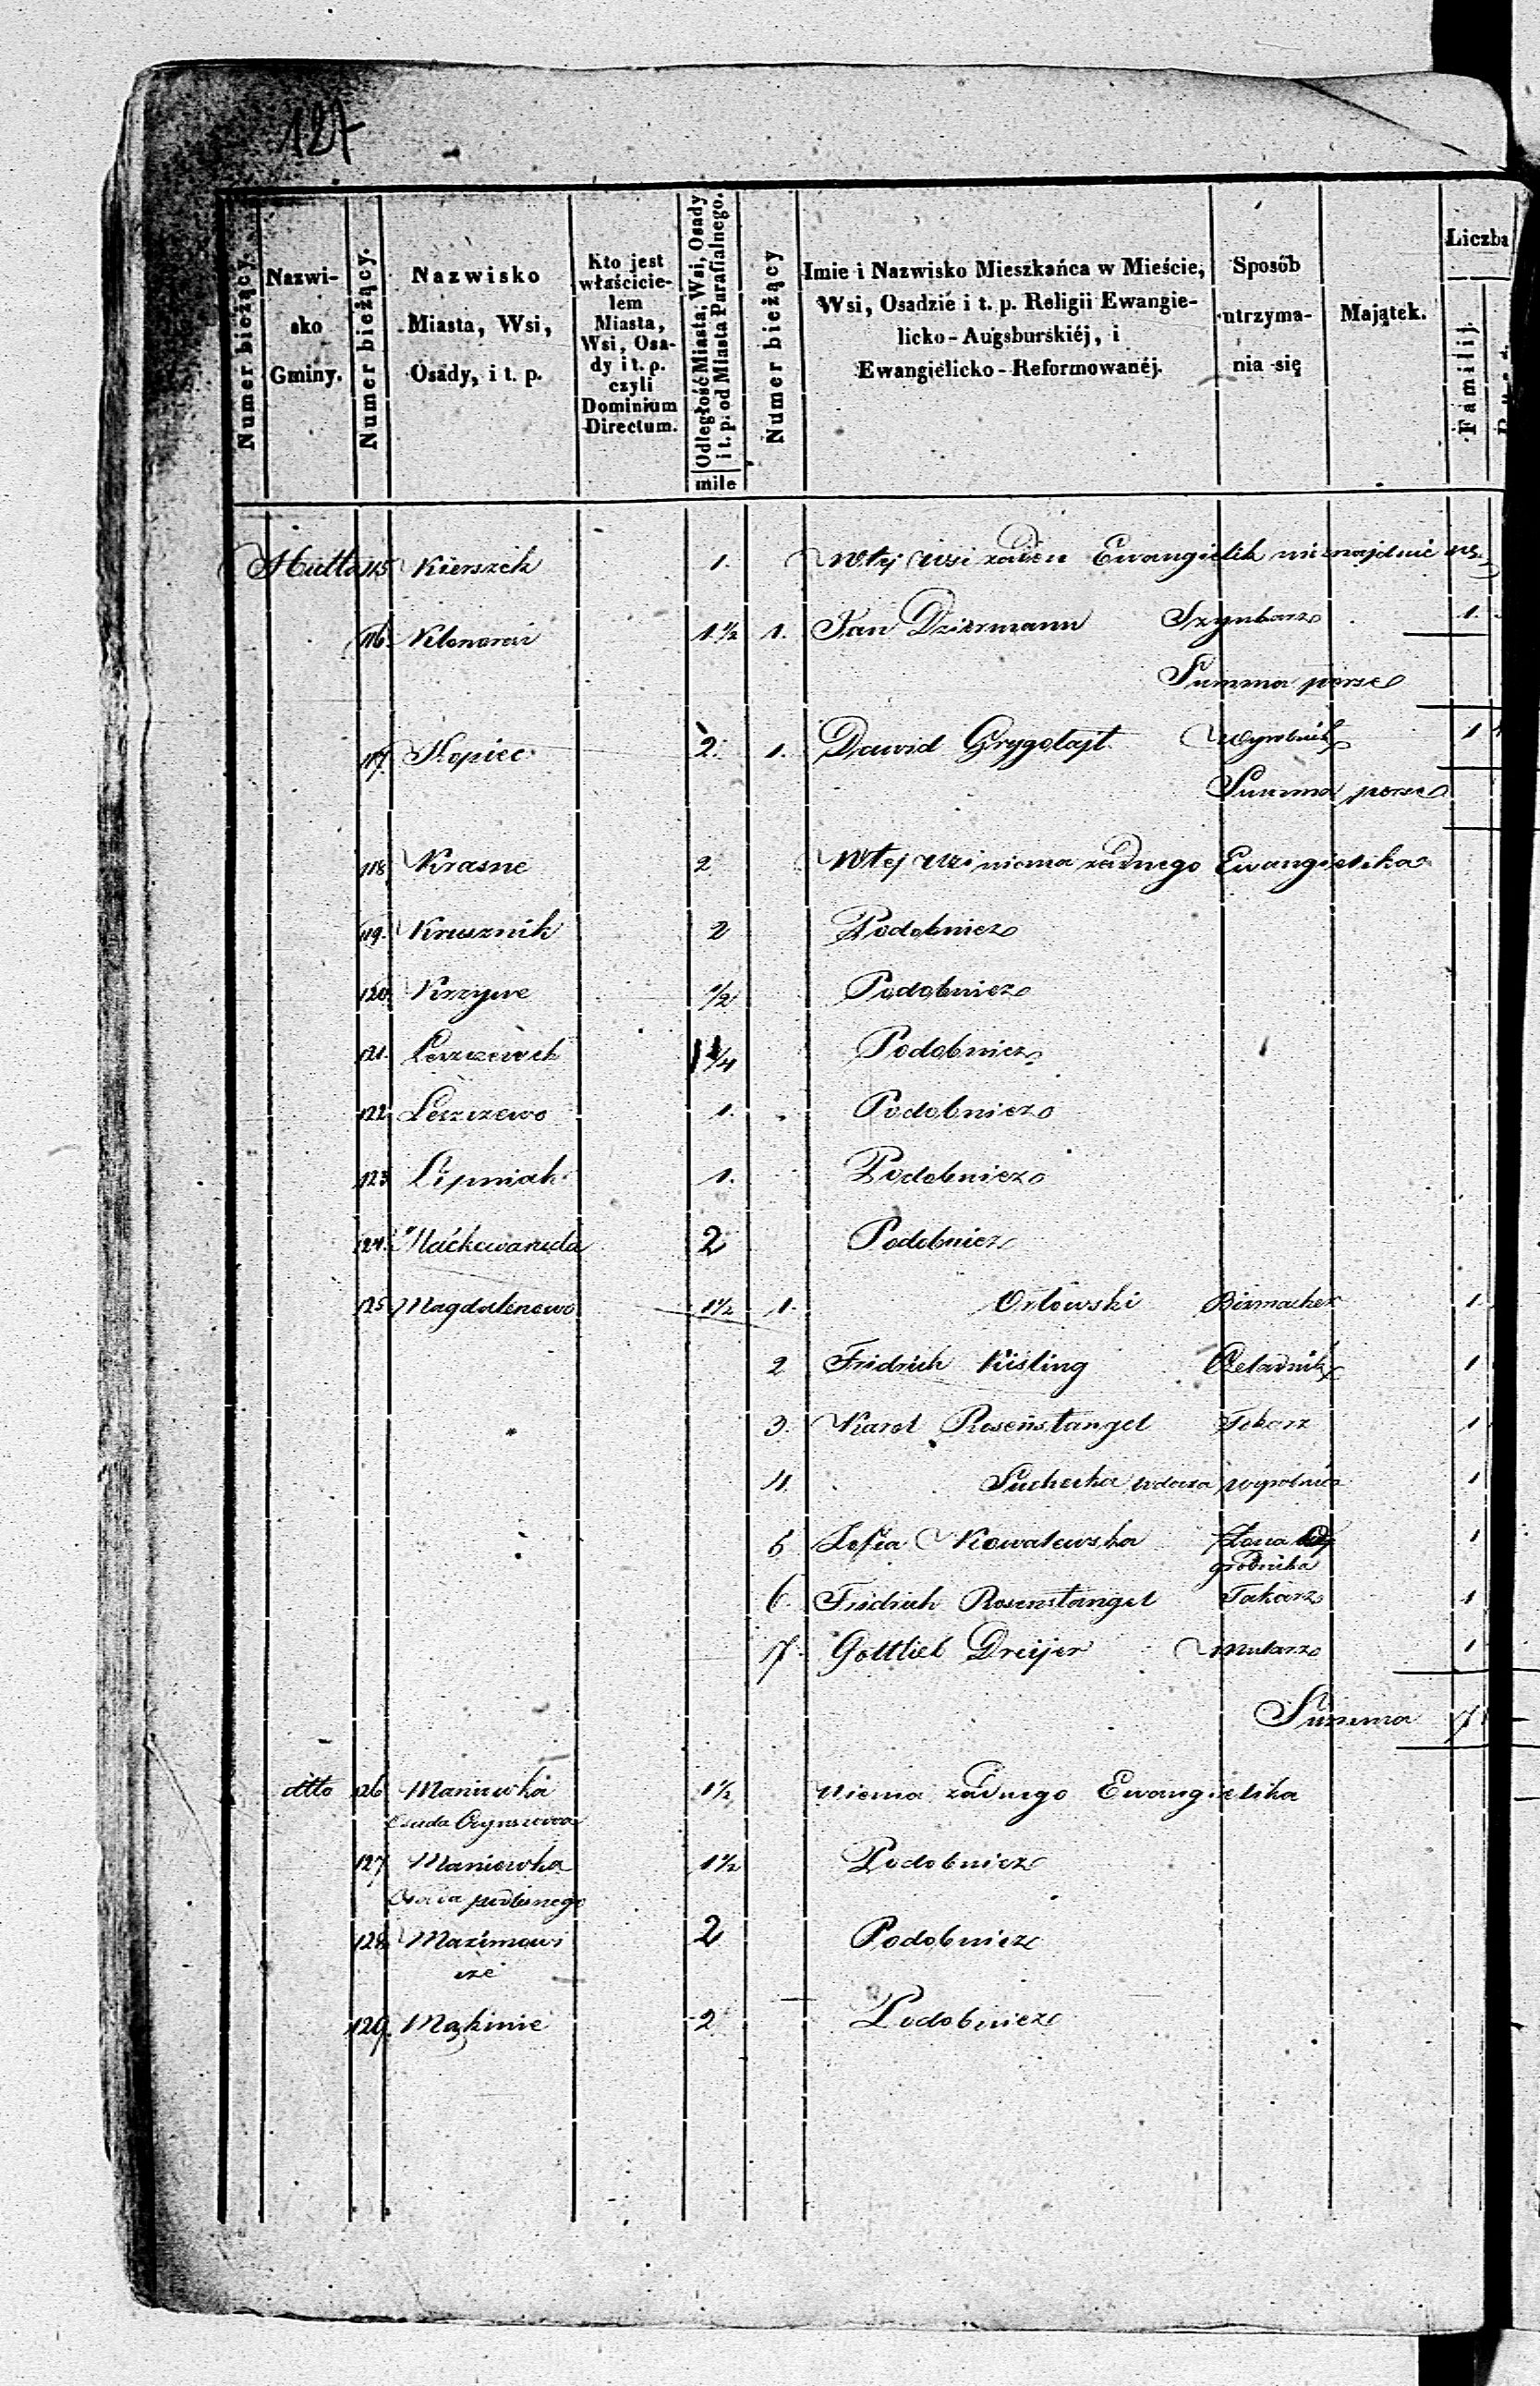 127
Numer bieżący.
Nazwi-
sko
Gminy.
Numer bieżący.
Nazwisko
Miasta, Wsi,
Osady, i t. p.
Kto jest
właścicie-
lem
Miasta,
Wsi, Osa-
dy i t. p.
czyli
Dominium
Directum.
Odległość Miasta, Wsi, Osady
i t. p. od Miasta Parafialnego.
mile
Numer bieżący
Imie i Nazwisko Mieszkańca w Mieście,
Wsi, Osadzie i t. p. Religii Ewangie-
licko-Augsburskiéj, i
Ewangielicko-Reformowanéj.
Sposób
utrzyma-
nia się
Majątek.
Liczba
Familij.
Hutta 115 Kierszek 1. W tej wsi żaden Ewangielik nieznajduie się
116. 1 1/2 1. Jan Dziermann Szynkarz 1.
Summa perse
117. Kopiec 2. 1. Dawid Grygołajt Wyrobnik 1
Summa perse
118 Krasne 2 W tej wsi niema żadnego Ewangielika
119. Krusznik 2 Podobnież
120 Krzywe 1/2 Podobnież
121. Leszczewek 1 1/4 Podobnież
122 Leszczewo 1. Podobnież
123 Lipniak 1. Podobnież
124. Maćkowaruda 2 Podobnież
125 Magdalenowo 1 1/2 1. Orłowski Birmacher 1.
2 Fridrich Kisling Czeladnik 1
3. Karol Rosenstangel Tokarz 1
4. Suchecka wdowa wyrobnica 1
5 Zofia Kowalewska żona Wy 1
grobnika
6. Fridrich Rosenstangel Tokarz 1
7. Gottlieb Dreijer Mularz 1
Summa 7
ditto 126 Maniówka 1 1/2 Niema żadnego Ewangielika
Czynszowa
127 Maniówka 1 1/2 Podobnież
Osada
128 Maximowi 2 Podobnież
cze
129. Mąkinie 2 Podobnież